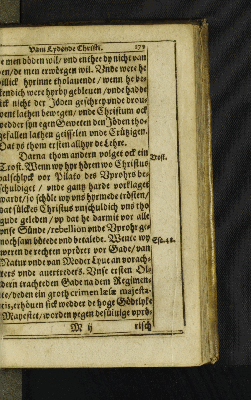 Vam Lydende Christi. 179
e men döden wil/ vnd entheet dy nicht van
en/de men erwörgen wil. Vnde were he
illick hyrinne tholauende / wenn he
kendich were hyrby gebleuen/vnde hadde
ick nicht der Jöden geschrey vnde
uent lathen bewegen/ vnde Christum ock
edder syn egen Geweten den Jöden tho
gefallen lathen geisselen vnde Crützigen.
Dat ys thom ersten allhyr de Lehre.
Darna thom andern volget ock ein
Trost. Wenn wy hyr hören wo Christus
valschlyck vor Pilato des Vprohrs be-
schuldiget / vnde gantz harde vorklaget
wardt/ so schöle wy vns hyrmede trösten/
dat sülckes Christus vnschuldich vns tho
gude geleden/ vp dat he darmit vor alle
vnse Sünde/rebellion vnde Vprohr ge-
nochsam böthede vnd betalede. Wente wy
weren de rechten vprörer vor Gade/ van
Natur vnde van Moder Lyue an vorach-
ters vnde auertreders. Vnse ersten Ol-
dern trachteden Gade na dem Regimen-
te/deden ein groth crimen læsæ maiesta-
tis, erhöuen sick wedder de hoge Gödtlyke
Mayestet/worden yegen desüluige vprö-
M ij risch
Trost.
Esa. 48.